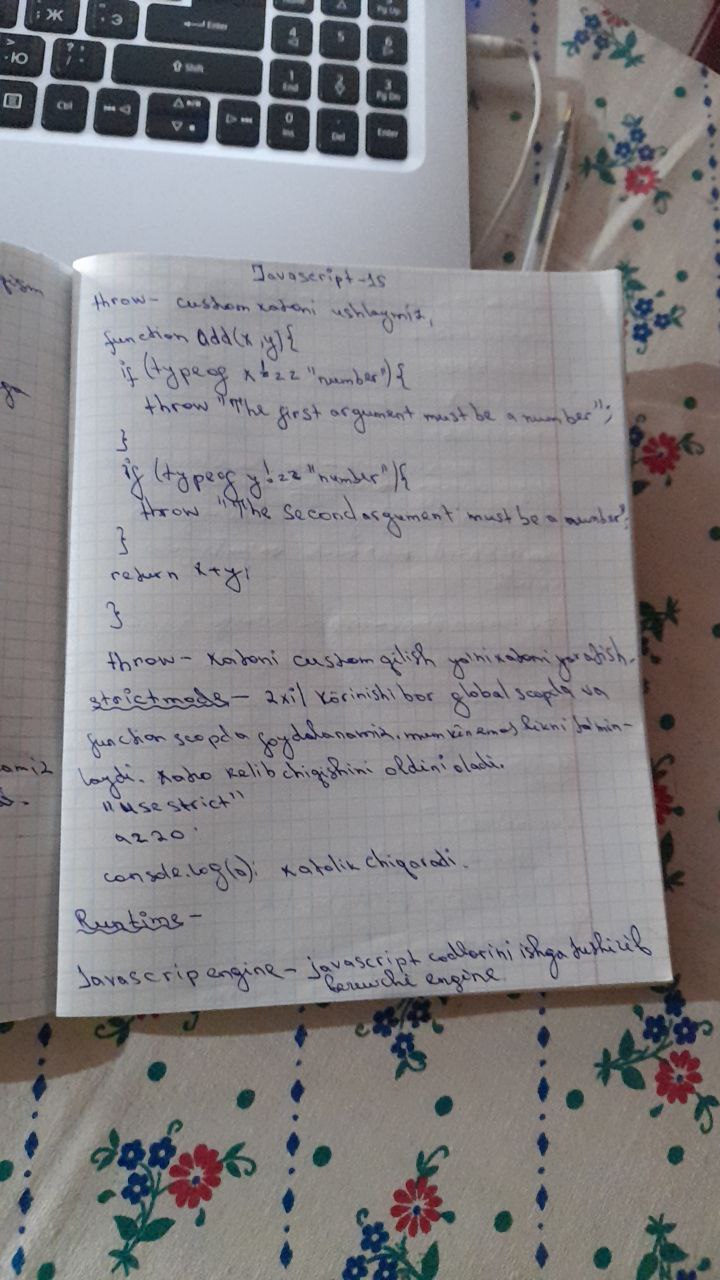 Ж
Э
Enter
4
5
6
Ю
?
Shift
1
End
2
3
Pg Dn
Ctrl
0
Ins
Del
Enter
Javascript-15
throw - custom xatoni ushlaymiz,
function Add(x,y){
if (typeof x!== "number"){
throw "The first argument must be a number";
}
if (typeof y!== "number"){
throw "The second argument must be a number";
}
return x+y;
}
throw - xatoni custom qilish ya'ni xatoni yaratish.
strict mode - 2 xil körinishi bor global scopda va
function scopda foydalanamiz. mumkin emaslikni ta'min-
laydi. xato kelib chiqishini oldini oladi.
"use strict"
a=20;
console.log(a); xatolik chiqaradi.
Runtime -
Javascrip engine - javascript codlarini ishga tushirib
beruvchi engine